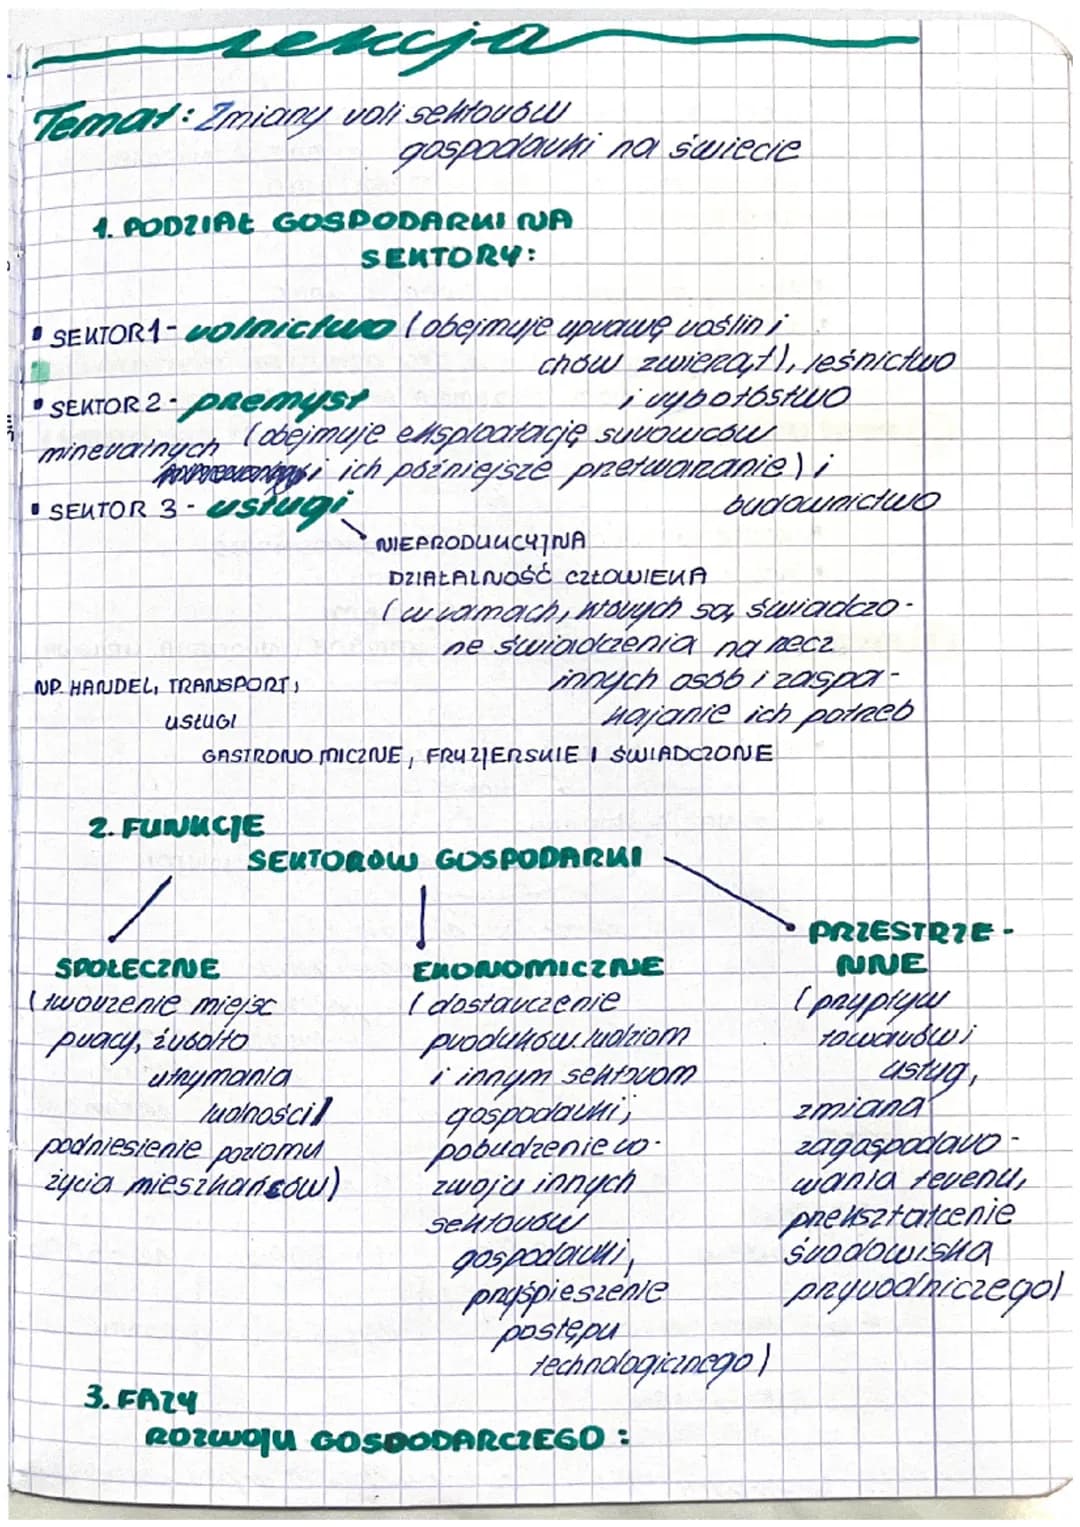 Lekcja
Temat: Zmiany roli sektorów
gospodarki na świecie
1. PODZIAŁ GOSPODARKI NA
SEKTORY:
▪ SEKTOR 1 - rolnictwo (obejmuje uprawę roślin i
chów zwierząt), leśnictwo
i rybołóstwo
▪ SEKTOR 2 - przemysł
(obejmuje eksploatację surowców
mineralnych
i ich późniejsze przetwarzanie) i
budownictwo
▪ SEKTOR 3 - usługi
NIEPRODUKCYJNA
DZIAŁALNOŚĆ CZŁOWIEKA
(w ramach, których są świadczo-
ne świadczenia na rzecz
innych osób i zaspa-
kajanie ich potrzeb
NP. HANDEL, TRANSPORT,
USŁUGI
GASTRONOMICZNE, FRYZJERSKIE I ŚWIADCZONE
2. FUNKCJE
SEKTORÓW GOSPODARKI
SPOŁECZNE
(tworzenie miejsc
pracy, źródło
utrzymania
ludności)
podniesienie poziomu
życia mieszkańców)
EKONOMICZNE
(dostarczenie
produków ludziom
i innym sektorom
gospodarki;
pobudzenie ro-
zwoju innych
sektorów
gospodarki,
przyśpieszenie
postępu
technologicznego)
PRZESTRZE-
NNE
(przypływ
towarów i
usług,
zmiana
zagospodaro-
wania terenu,
przekształcenie
środowiska
przyrodniczego)
3. FAZY
ROZWOJU GOSPODARCZEGO: